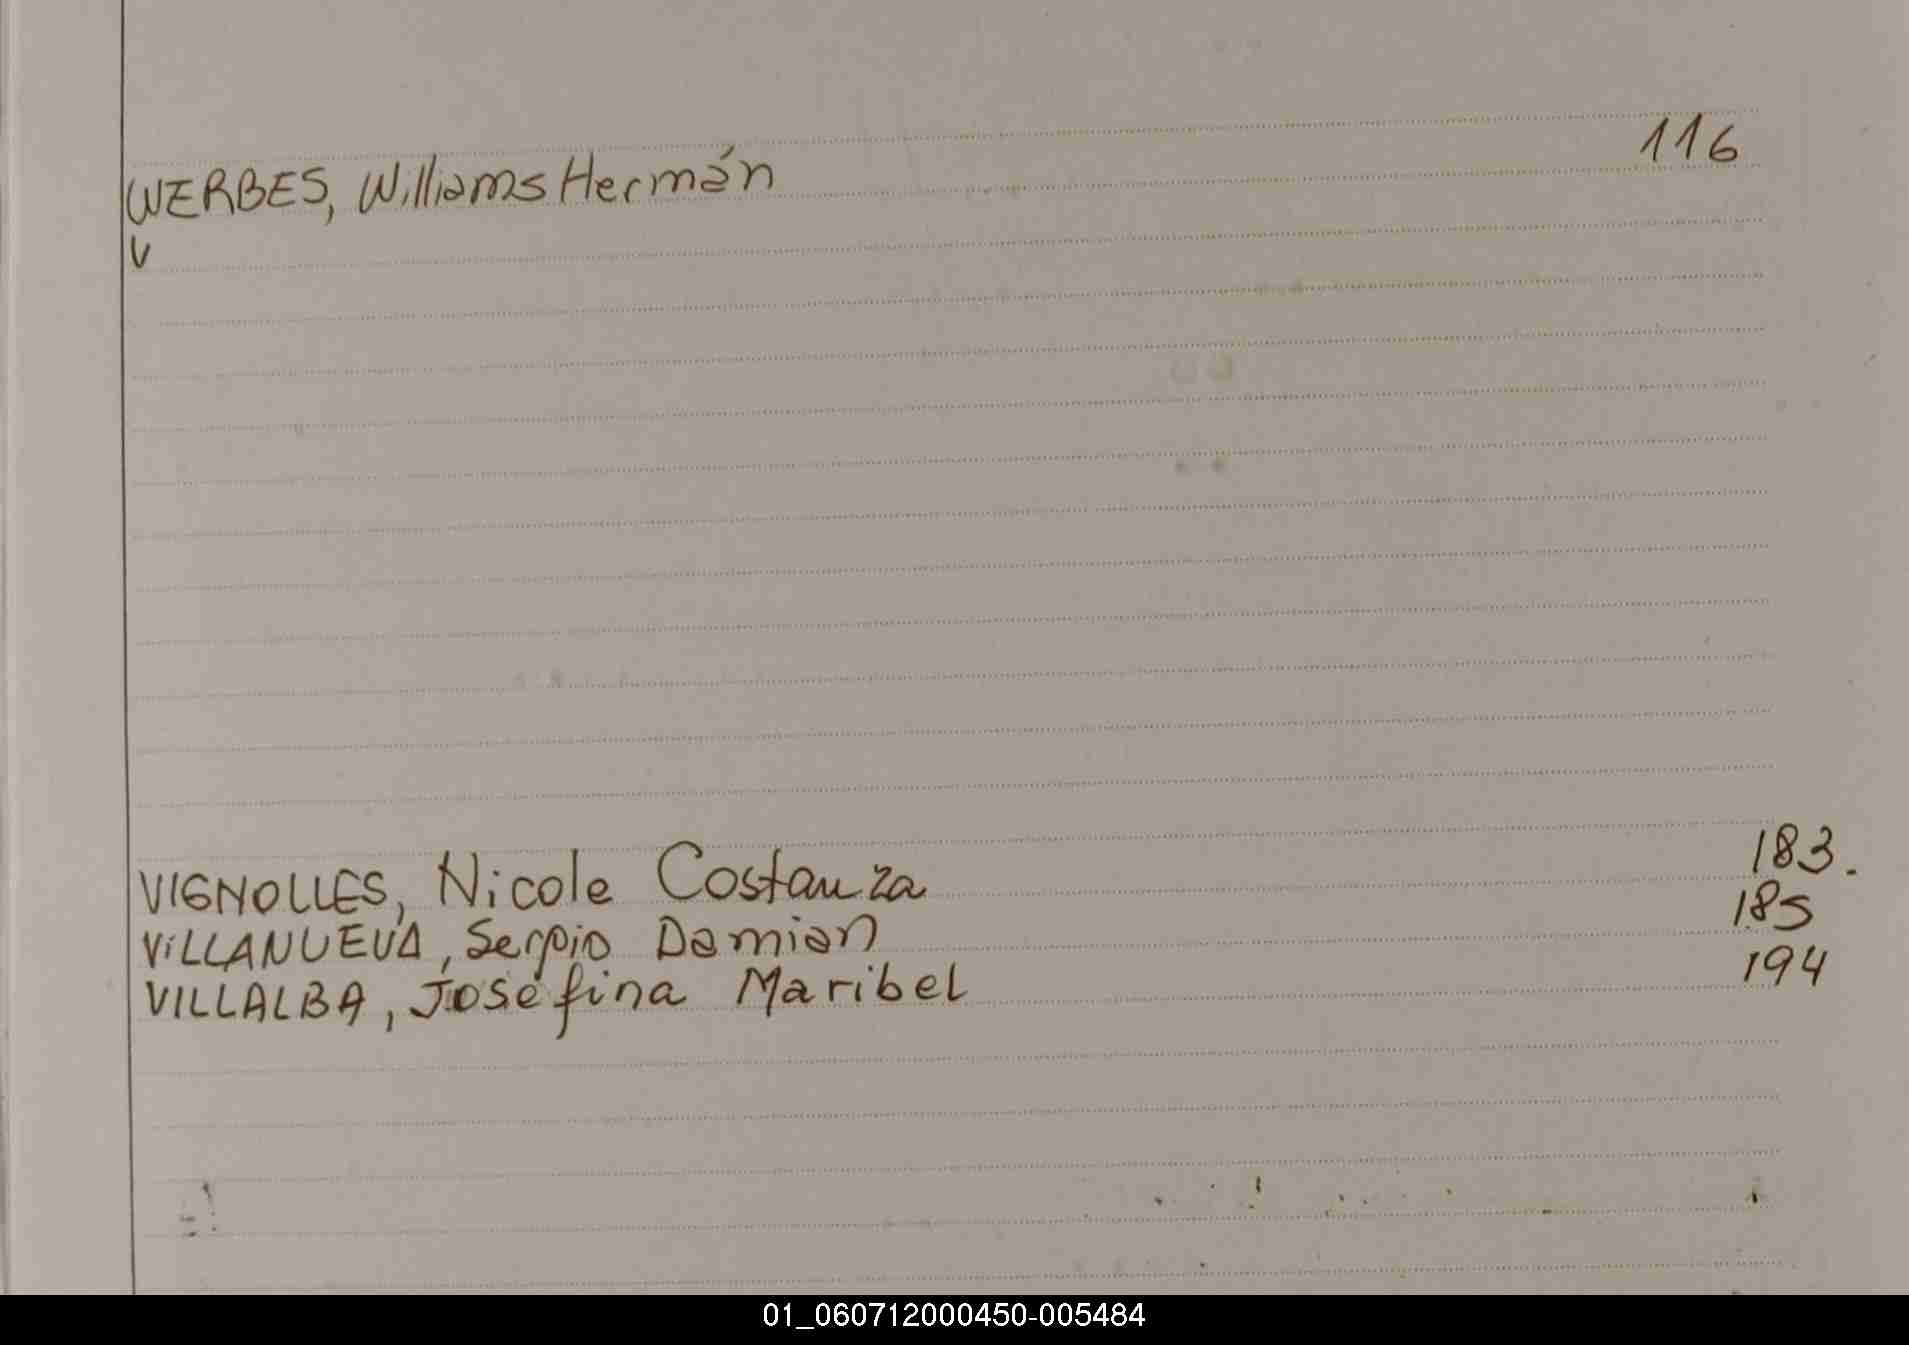 WERBES, Williams Hermán 116
V
VIGNOLLES, Nicole Costanza 183.
ViLLANUEVA, Sergio Damian 185
VILLALBA, Josefina Maribel 194
01_060712000450-005484